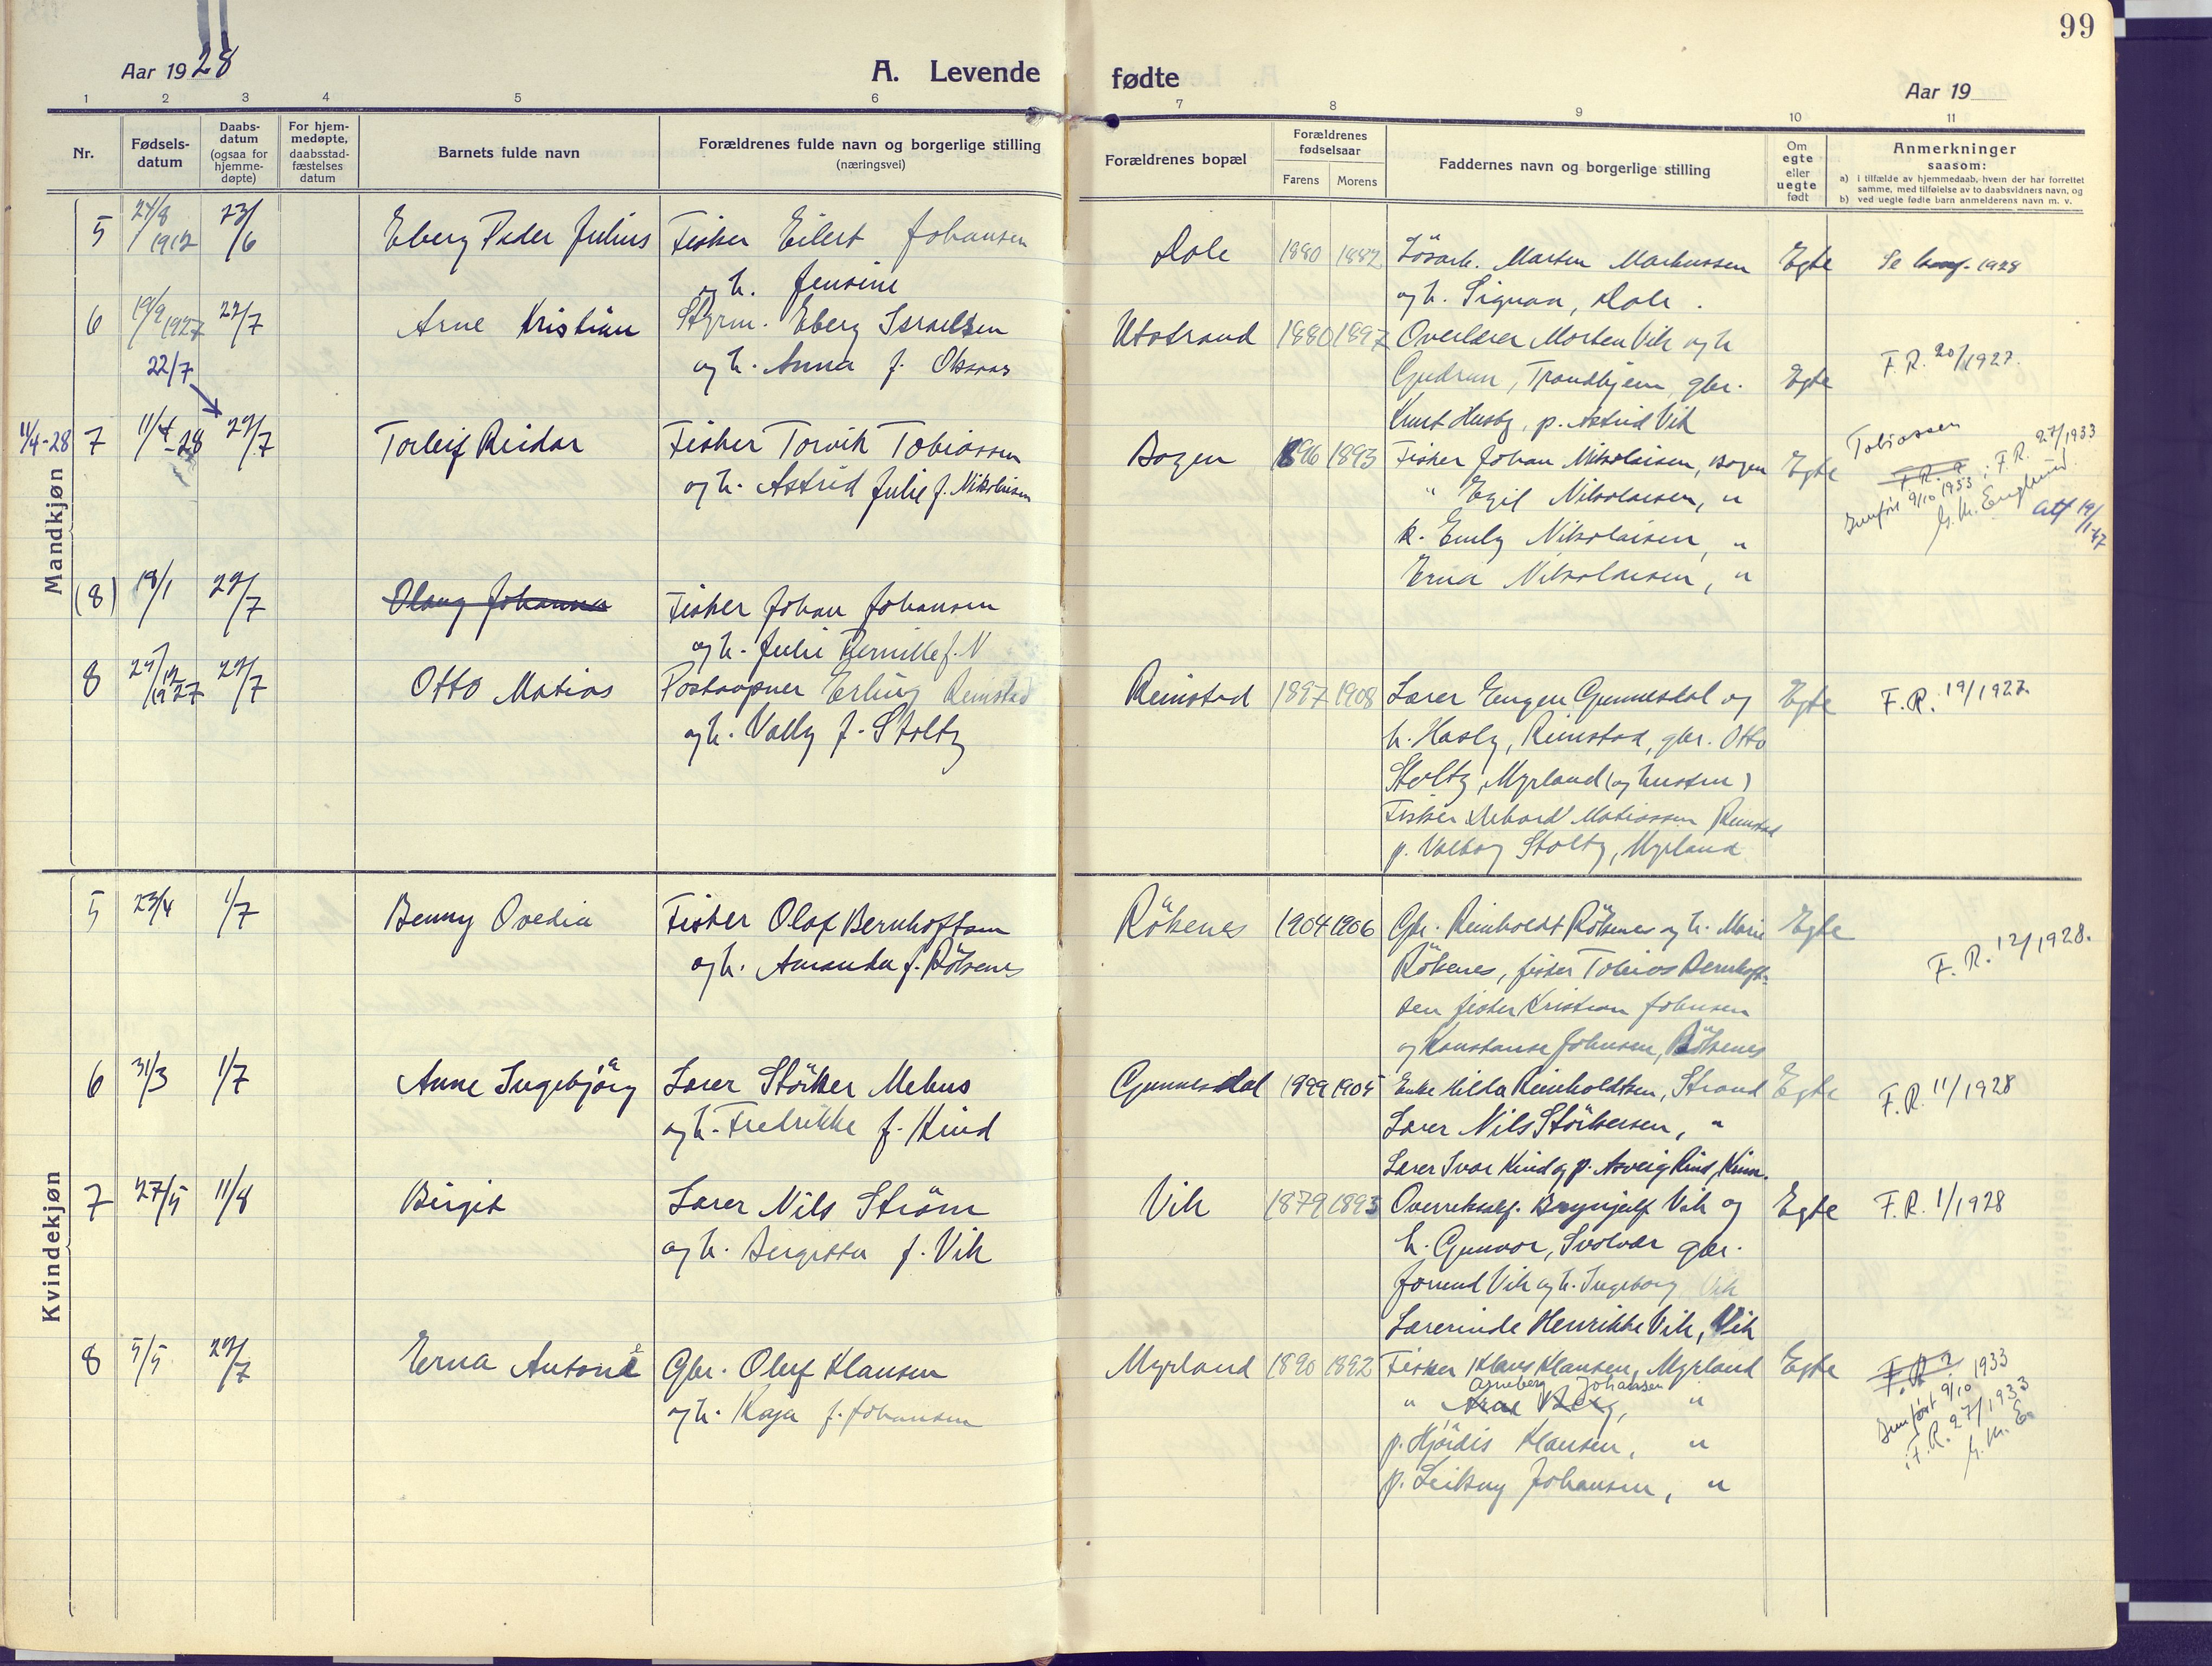 99
Aar 1928
A. Levende
fødte
Aar 19
1 2 3 4 5 6 7 8 9 10 11
Nr.
Fødsels-
datum
Daabs-
datum
(ogsaa for
hjemme-
døpte)
For hjem-
medøpte,
daabsstad-
fæstelses
datum
Barnets fulde navn
Forældrenes fulde navn og borgerlige stilling
(næringsvei)
Forældrenes bopæl
Forældrenes
fødselsaar
Farens Morens
Faddernes navn og borgerlige stilling
Om
egte
eller
uegte
født
Anmerkninger
saasom:
a) i tilfælde av hjemmedaab, hvem der har forrettet
samme, med tilføielse av to daabsvidners navn, og
b) ved uegte fødte barn anmelderens navn m. v.
Mandkjøn
5 24/8 1912 23/6 Eberg Peder Julius
Fisker Eilert Johansen
og h. Jensine
Dale 1880 1882
Løsarb. Marten Markussen
og h. Signora, Dale.
Egte
Se konf. 1928
6 19/9 1927 22/7 Arne Kristian
Styrm. Eberg Israelsen
og h. Anna f. Oksaas
Utstrand 1880 1897
Overlærer Morten Vik og h
Gudrun, Trondhjem gbr.
Knut Husby, p. Astrid Vik
Egte
F. R. 20/1927.
22/7
11/4-28 7 11/4-28 29/7 Torleif Reidar
Fisker Torvik Tobiassen
og h. Astrid Julie f. Nikolaisen
Bogen 1896 1893
Fisker Johan Nikolaisen, Bogen
" Egil Nikolaisen, "
k. Emly Nikolaisen, "
Erna Nikolaisen, "
Egte
Tobiassen
F. R. ?
Innført 9/10 1933 i F. R. 27/1933
G. M. Englund
att 19/1-47
(8) 18/1 29/7 Olaug Johanna
Fisker Johan Johansen
og h. Julie Pernille f. N
8 27/12 1927 29/7 Otto Matias
Postaapner Erling Reinstad
og h. Vally f. Stoltz
Reinstad 1897 1908
Lærer Eugen Gunnesdal og
h. Hasly, Reinstad, gbr. Otto
Stoltz, Myrland (og hustru)
Fisker Edvard Matiassen Reinstad
p. Valborg Stoltz, Myrland
Egte
F. R. 19/1927.
Kvindekjøn
5 23/4 1/7 Benny Ovedia
Fisker Olaf Bernhoftsen
og h. Amanda f. Rökenes
Rökenes 1904 1906
Gbr. Reinholdt Rökenes og h. Marie
Rökenes, fisker Tobias Bernhoft-
sen fisker Kristian Johnsen
og Konstanse Johnsen, Rökenes
Egte
F. R. 12/1928.
6 31/3 1/7 Anne Ingebjörg
Lærer Störker Mebus
og h. Fredrikke f. Kind
Gunnesdal 1899 1905
Enke Hilda Reinholdtsen, Strand
Lærer Nils Störkersen, "
Lærer Ivar Kind og p. Asveig Kind,
Egte
F. R. 11/1928
7 27/5 11/8 Birgit
Lærer Nils Ström
og h. Bergitta f. Vik
Vik 1879 1893
Brynjulf Vik og
h. Gunvor, Svolvær gbr.
Jorund Vik og h. Ingeborg Vik
Lærerinde Henrikke Vik, Vik
Egte
F. R. 1/1928
8 5/5 29/7 Erna Antonie
Gbr. Oluf Klausen
og h. Kaja f. Johansen
Myrland 1890 1892
Fisker Klaus Klausen, Myrland
Agneberg Johansen
" Arne Berg, "
p. Hjördis Klausen, "
p. Leikny Johansen, "
Egte
F. R. ?
Innført 9/10 1933
i F. R. 27/1933
G. M. E.